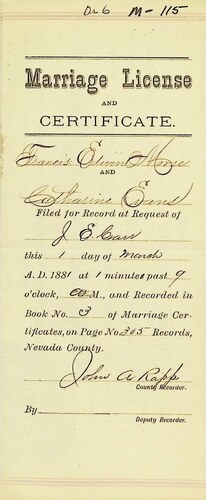 Dr 6 M-115
Marriage License
AND
CERTIFICATE.
Francis Edwin Morse
AND
Catharine Evans
Filed for Record at Request of
J. E. Carr
this 1 day of March
A.D. 1881 at 1 minutes past 9
o'clock, A.M., and Recorded in
Book No. 3 of Marriage Cer-
tificates, on Page No 305 Records,
Nevada County.
John A Rapp
County Recorder.
By
Deputy Recorder.